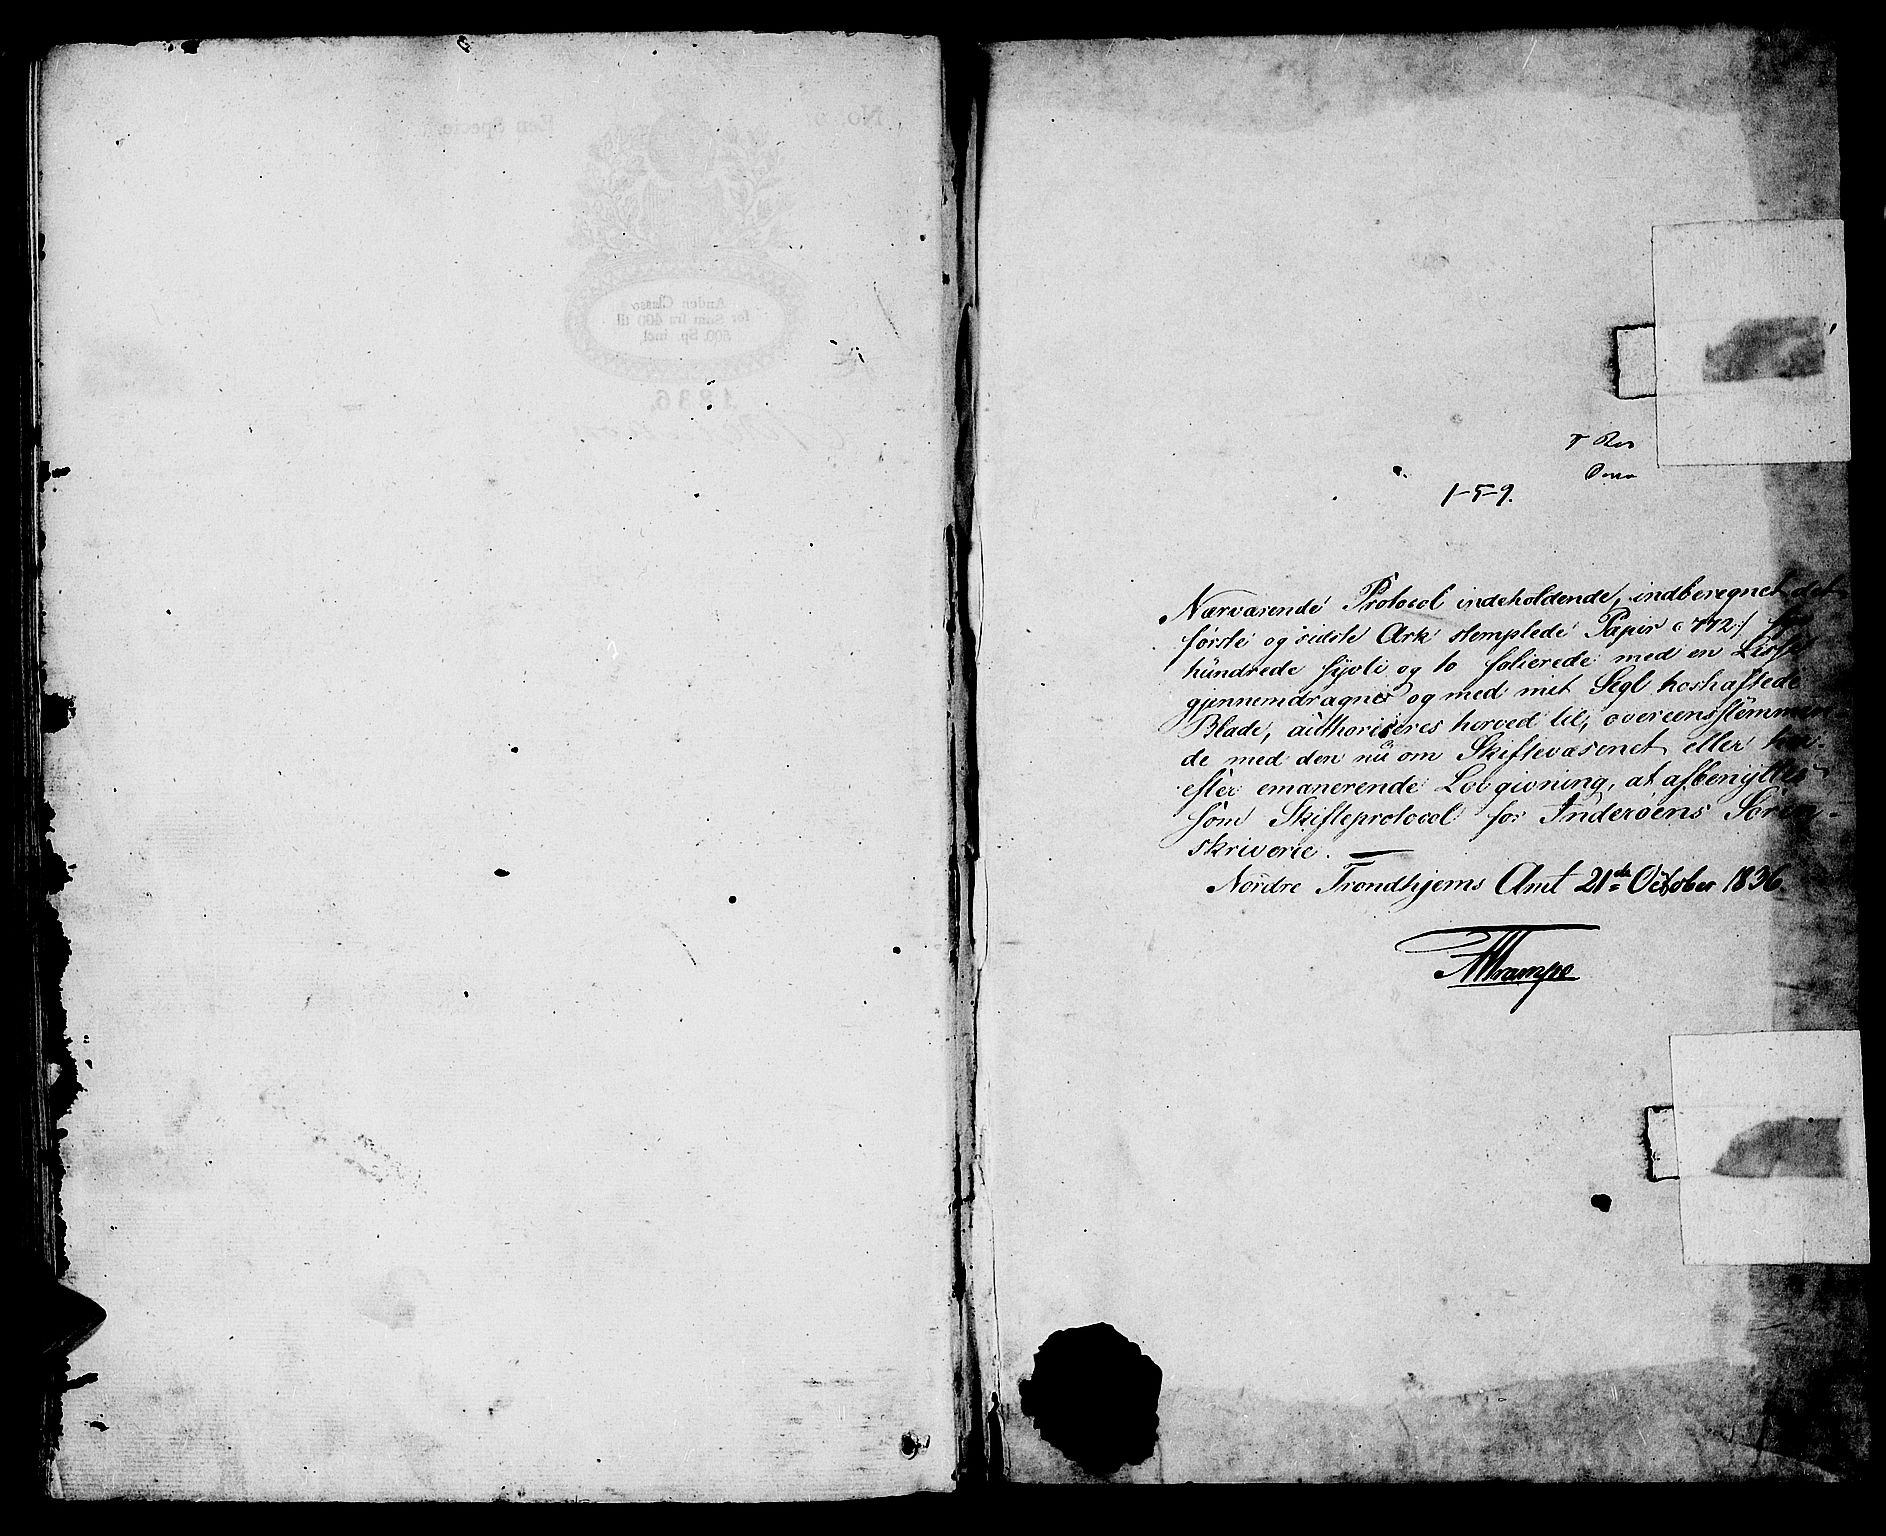 1-5-9.
Nærværende Protocol indeholdende, indberegnet det
første og sidste Ark stemplede Papir
hundrede syvti og to folierede med en Lidse
gjennemdragne og med mit Segl heshæftede
Blade, authoriseres herved til, overeensstemmen-
de med den nu om Skiftevæsenet eller her-
efter emanerende Lovgivning, at afbenyttes
som Skifteprotocol for Inderøens Soren-
skriverie.
Nordre Trondhjems Amt 21de October 1836
Trampe
Anden Classe
for Sum fra 400 til
500 Sp. incl.
1836.